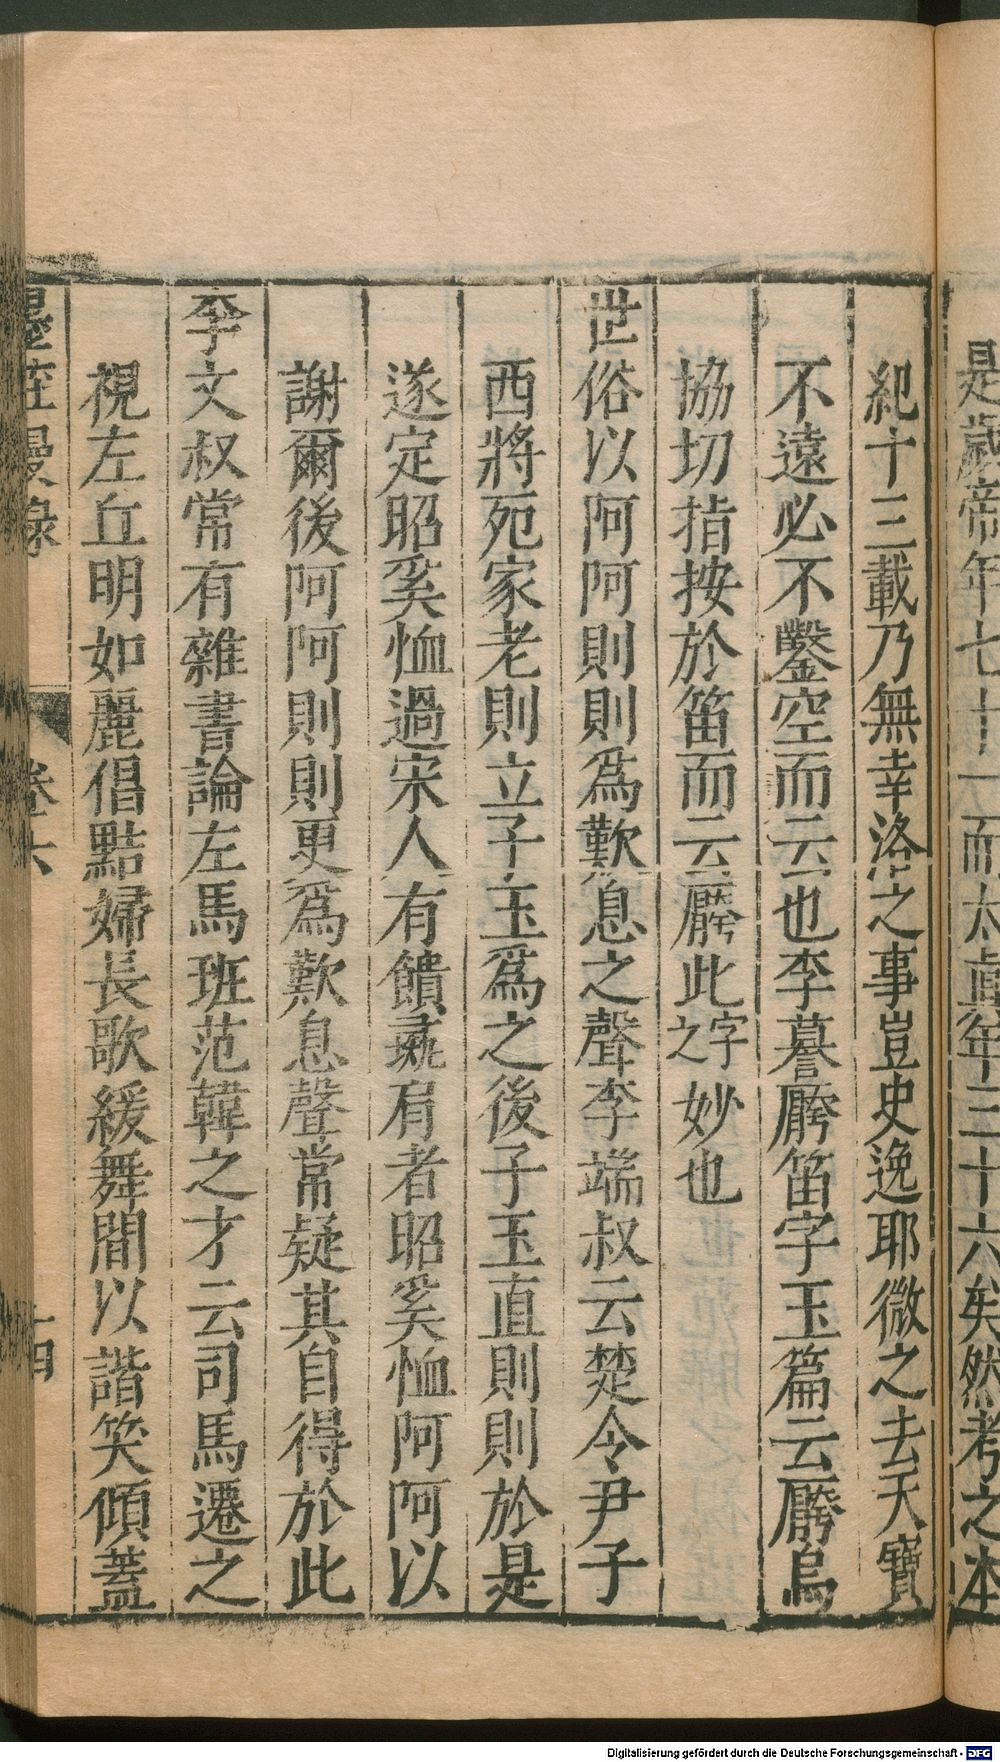 是歲帝年七十一而太真年三十六矣然考之本
紀十三載乃無幸洛之事豈史逸耶微之去天寶
不遠必不鑿空而云也李謩擪笛字玉篇云擪烏
協切指按於笛而云擪此字之妙也
世俗以阿阿則則爲歎息之聲李端叔云楚令尹子
西將死家老則立子玉爲之後子玉直則則於是
遂定昭奚恤過宋人有饋彘肩者昭奚恤阿阿以
謝爾後阿阿則則更爲歎息聲常疑其自得於此
李文叔常有雜書論左馬班范韓之才云司馬遷之
視左丘明如麗倡黠婦長歌緩舞間以諧笑傾蓋
墨莊漫錄 卷六 十四
Digitalisierung gefördert durch die Deutsche Forschungsgemeinschaft - DFG